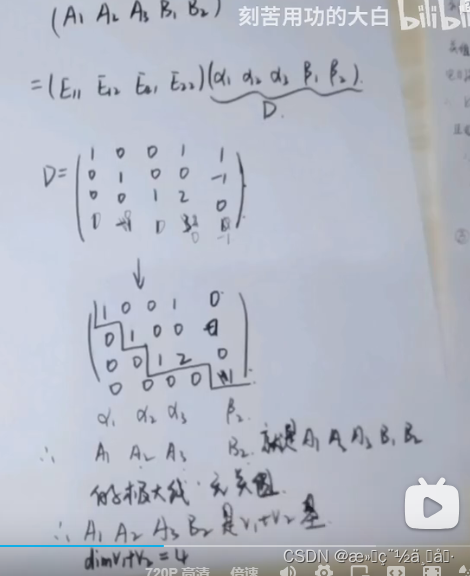 (A₁ A₂ A₃ B₁ B₂)
刻苦用功的大白 bilibili
=(E₁₁ E₁₂ E₂₁ E₂₂)(α₁ α₂ α₃ β₁ β₂).
D.
D=
1 0 0 1 1
0 1 0 0 -1
0 0 1 2 0
↓
1 0 0 1 0
0 1 0 0
0 0 1 2 0
0 0 0 0
α₁ α₂ α₃ β₂
∴ A₁ A₂ A₃ B₂ 就是A₁ A₂ A₃ B₁ B₂
的极大线 无关组
∴ A₁ A₂ A₃ B₂ 是V₁+V₂ 基
dimV₁+V₂ = 4
720P 高清 倍速
CSDN